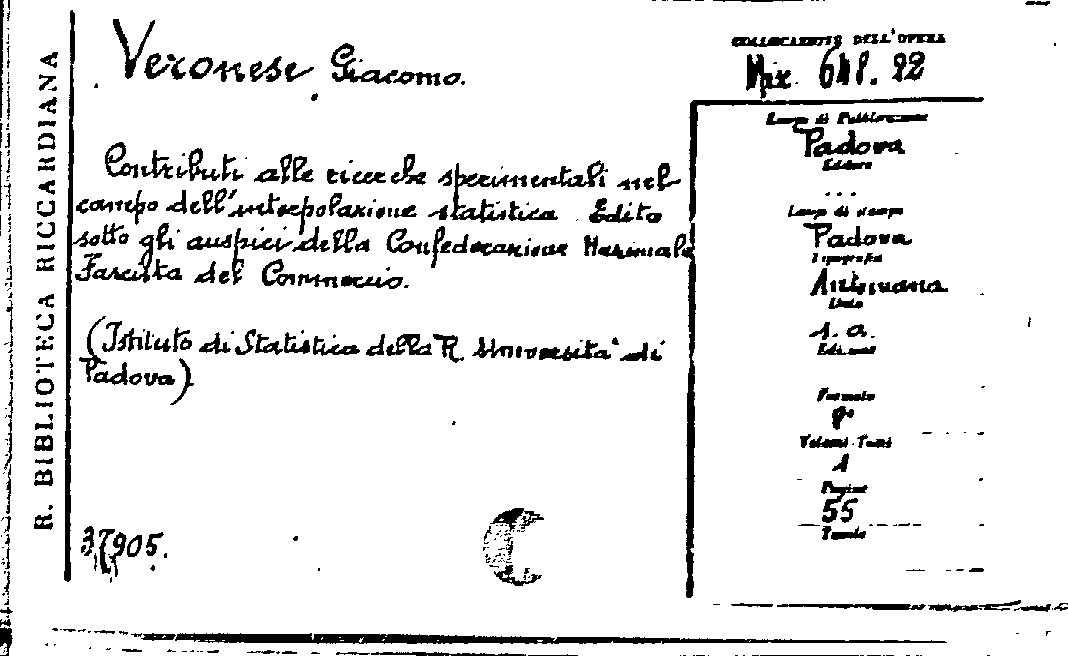 R. BIBLIOTECA RICCARDIANA
Veronese Giacomo.
Contributi alle ricerche sperimentali nel
campo dell'interpolazione statistica Edito
sotto gli auspici della Confederazione Nazionale
Fascista del Commercio.
(Istituto di Statistica della R. Università di
Padova)
37905.
COLLOCAZIONE DELL'OPERA
Mix. 22
Luogo di Pubblicazione
Padova
Editore
...
Luogo di stampa
Padova
Tipografia
Antoniana
Data
s. a.
Edizione
Formato
8°
Volumi-Tomi
1
Pagine
55
Tavole